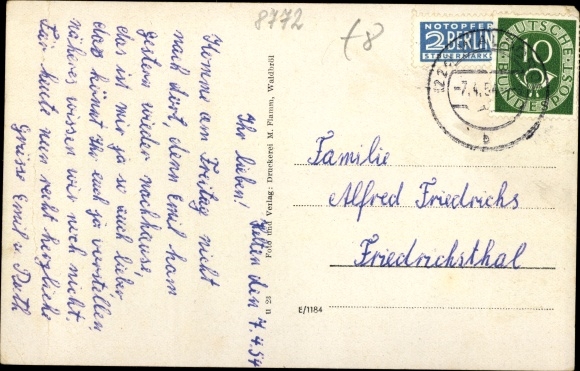 8772
+8
NOTOPFER
2 BERLIN
STEUERMARKE
DEUTSCHE
BUNDESPOST
10
-7.4.54
b
den 7.4.54
Ihr lieben!
Komme am Freitag nicht
nach dort, denn Emil kam
gestern wieder nachhause,
das ist mir ja so auch lieber
das könnt Ihr euch ja vorstellen.
näheres wissen wir noch nicht.
Für heute nun recht herzliche
Grüsse Emil u. Ruth
Foto und Verlag: Druckerei M. Flamm, Waldbröl
B 26
E/1184
Familie
Alfred Friedrichs
Friedrichsthal